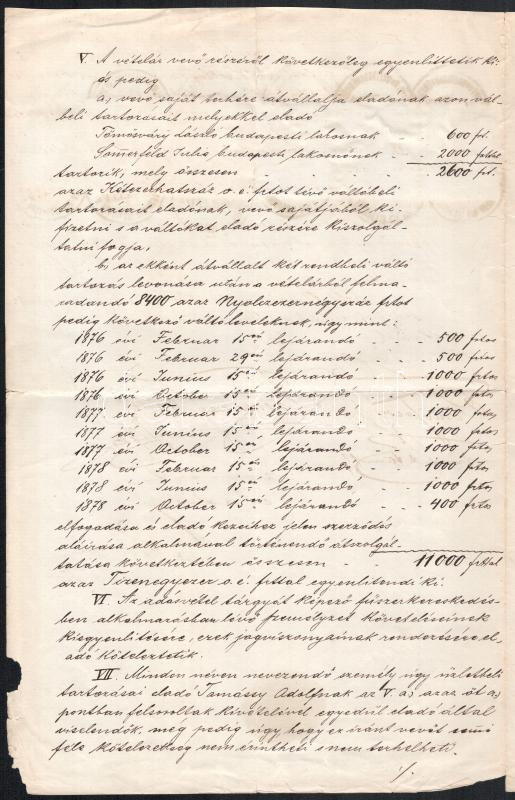 V. A vételár vevő részéről következőleg egyenlíttetik ki:
és pedig
a, vevő saját terhére átvállalja eladónak azon vál-
tóbeli tartozásait melyekkel eladó
Tömösváry László budapesti lakosnak - - 600 frt.
Somerfeld Julia budapesti lakosnőnek - - 2000 frttal
tartozik, mely összesen - - - - 2600 frt.
azaz Kétezerhatszáz o. é. frtot tévő váltóbeli
tartozásait eladónak, vevő sajátjából ki-
fizetni s a váltókat eladó részére kiszolgál-
tatni fogja,
b, az ekként átvállalt két rendbeli váltó
tartozás levonása után a vételárból felma-
radandó 8400 azaz Nyolczezernégyszáz frtot
pedig következő váltóleveleknek, úgymint:
1876 évi Februar 15én lejárandó - - - 500 frtos
1876 évi Februar 29én lejárandó - - - 500 frtos
1876 évi Junius 15én lejárandó - - - 1000 frtos
1876 évi October 15én lejárandó - - 1000 frtos
1877 évi Februar 15én lejárandó - - 1000 frtos
1877 évi Junius 15én lejárandó - - 1000 frtos
1877 évi October 15én lejárandó - - 1000 frtos
1878 évi Februar 15én lejárandó - - 1000 frtos
1878 évi Junius 15én lejárandó - - 1000 frtos
1878 évi October 15én lejárandó - - 400 frtos
elfogadása és eladó kezeihez jelen szerződés
aláírása alkalmával történendő átszolgál-
tatása következtében összesen - - 11000 frttal
azaz Tizenegyezer o. é. frttal egyenlítendi ki.
VI. Az adásvétel tárgyát képező fűszerkereskedés-
ben alkalmazásban lévő személyzet követeléseinek
kiegyenlítésére, ezek jogviszonyainak rendezésére el-
adó köteleztetik.
VII. Minden néven nevezendő személy úgy üzletbeli
tartozásai eladó Tamássy Adolfnak az V a, azaz öt a,
pontban felsoroltak kivételével egyedül eladó által
viselendők, még pedig úgy hogy ez iránt vevőt semmi
féle kötelezettség nem érintheti s nem terhelheti.
./.